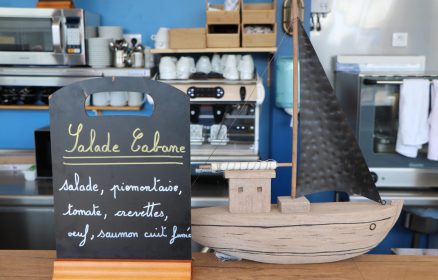 Salade Cabane
salade, piemontaise,
tomate, crevettes,
œuf, saumon cuit fumé